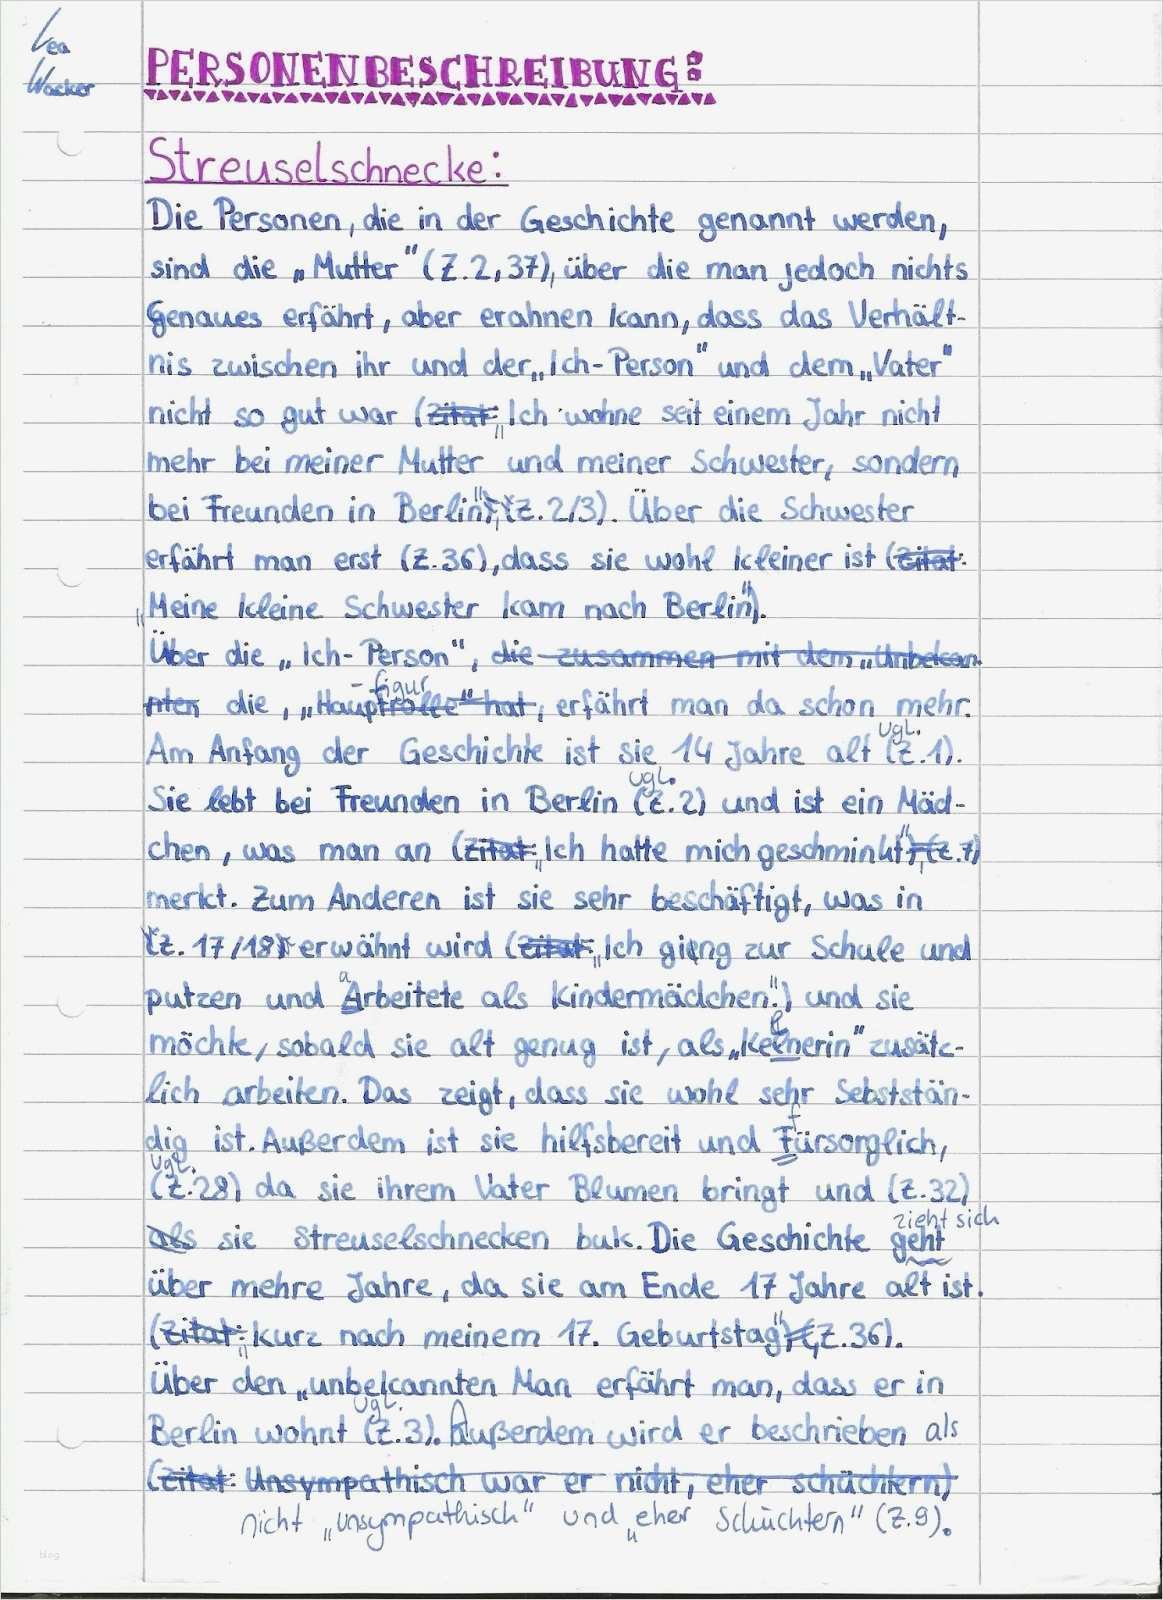 Lea
Wacker
PERSONENBESCHREIBUNG:
Streuselschnecke:
Die Personen, die in der Geschichte genannt werden,
sind die „Mutter" (Z.2,37), über die man jedoch nichts
Genaues erfährt, aber erahnen kann, dass das Verhält-
nis zwischen ihr und der „Ich-Person" und dem „Vater"
nicht so gut war (Zitat: „Ich wohne seit einem Jahr nicht
mehr bei meiner Mutter und meiner Schwester, sondern
bei Freunden in Berlin", (Z.2/3). Über die Schwester
erfährt man erst (Z.36), dass sie wohl kleiner ist (Zitat:
„Meine kleine Schwester kam nach Berlin").
Über die „Ich-Person", die zusammen mit dem „Unbekan
nten die, „Hauptrolle" hat, erfährt man da schon mehr.
-figur
Am Anfang der Geschichte ist sie 14 Jahre alt (vgl. Z.1).
Sie lebt bei Freunden in Berlin (vgl. Z.2) und ist ein Mäd-
chen, was man an (Zitat: „Ich hatte mich geschminkt", (Z.7)
merkt. Zum Anderen ist sie sehr beschäftigt, was in
(Z.17/18) erwähnt wird (Zitat: „Ich gieng zur Schule und
putzen und Arbeitete als Kindermädchen.") und sie
a
möchte, sobald sie alt genug ist, als „Kelnerin" zusätz-
l
lich arbeiten. Das zeigt, dass sie wohl sehr Sebststän-
dig ist. Außerdem ist sie hilfsbereit und Fürsorglich,
f
(vgl. Z.28) da sie ihrem Vater Blumen bringt und (Z.32)
als sie Streuselschnecken buk. Die Geschichte geht
zieht sich
über mehre Jahre, da sie am Ende 17 Jahre alt ist.
(Zitat: „kurz nach meinem 17. Geburtstag", (Z.36).
Über den „unbekannten Man erfährt man, dass er in
Berlin wohnt (vgl. Z.3). Außerdem wird er beschrieben als
(Zitat: Unsympathisch war er nicht, eher schüchtern)
nicht „unsympathisch" und „eher Schüchtern" (Z.9).
blog